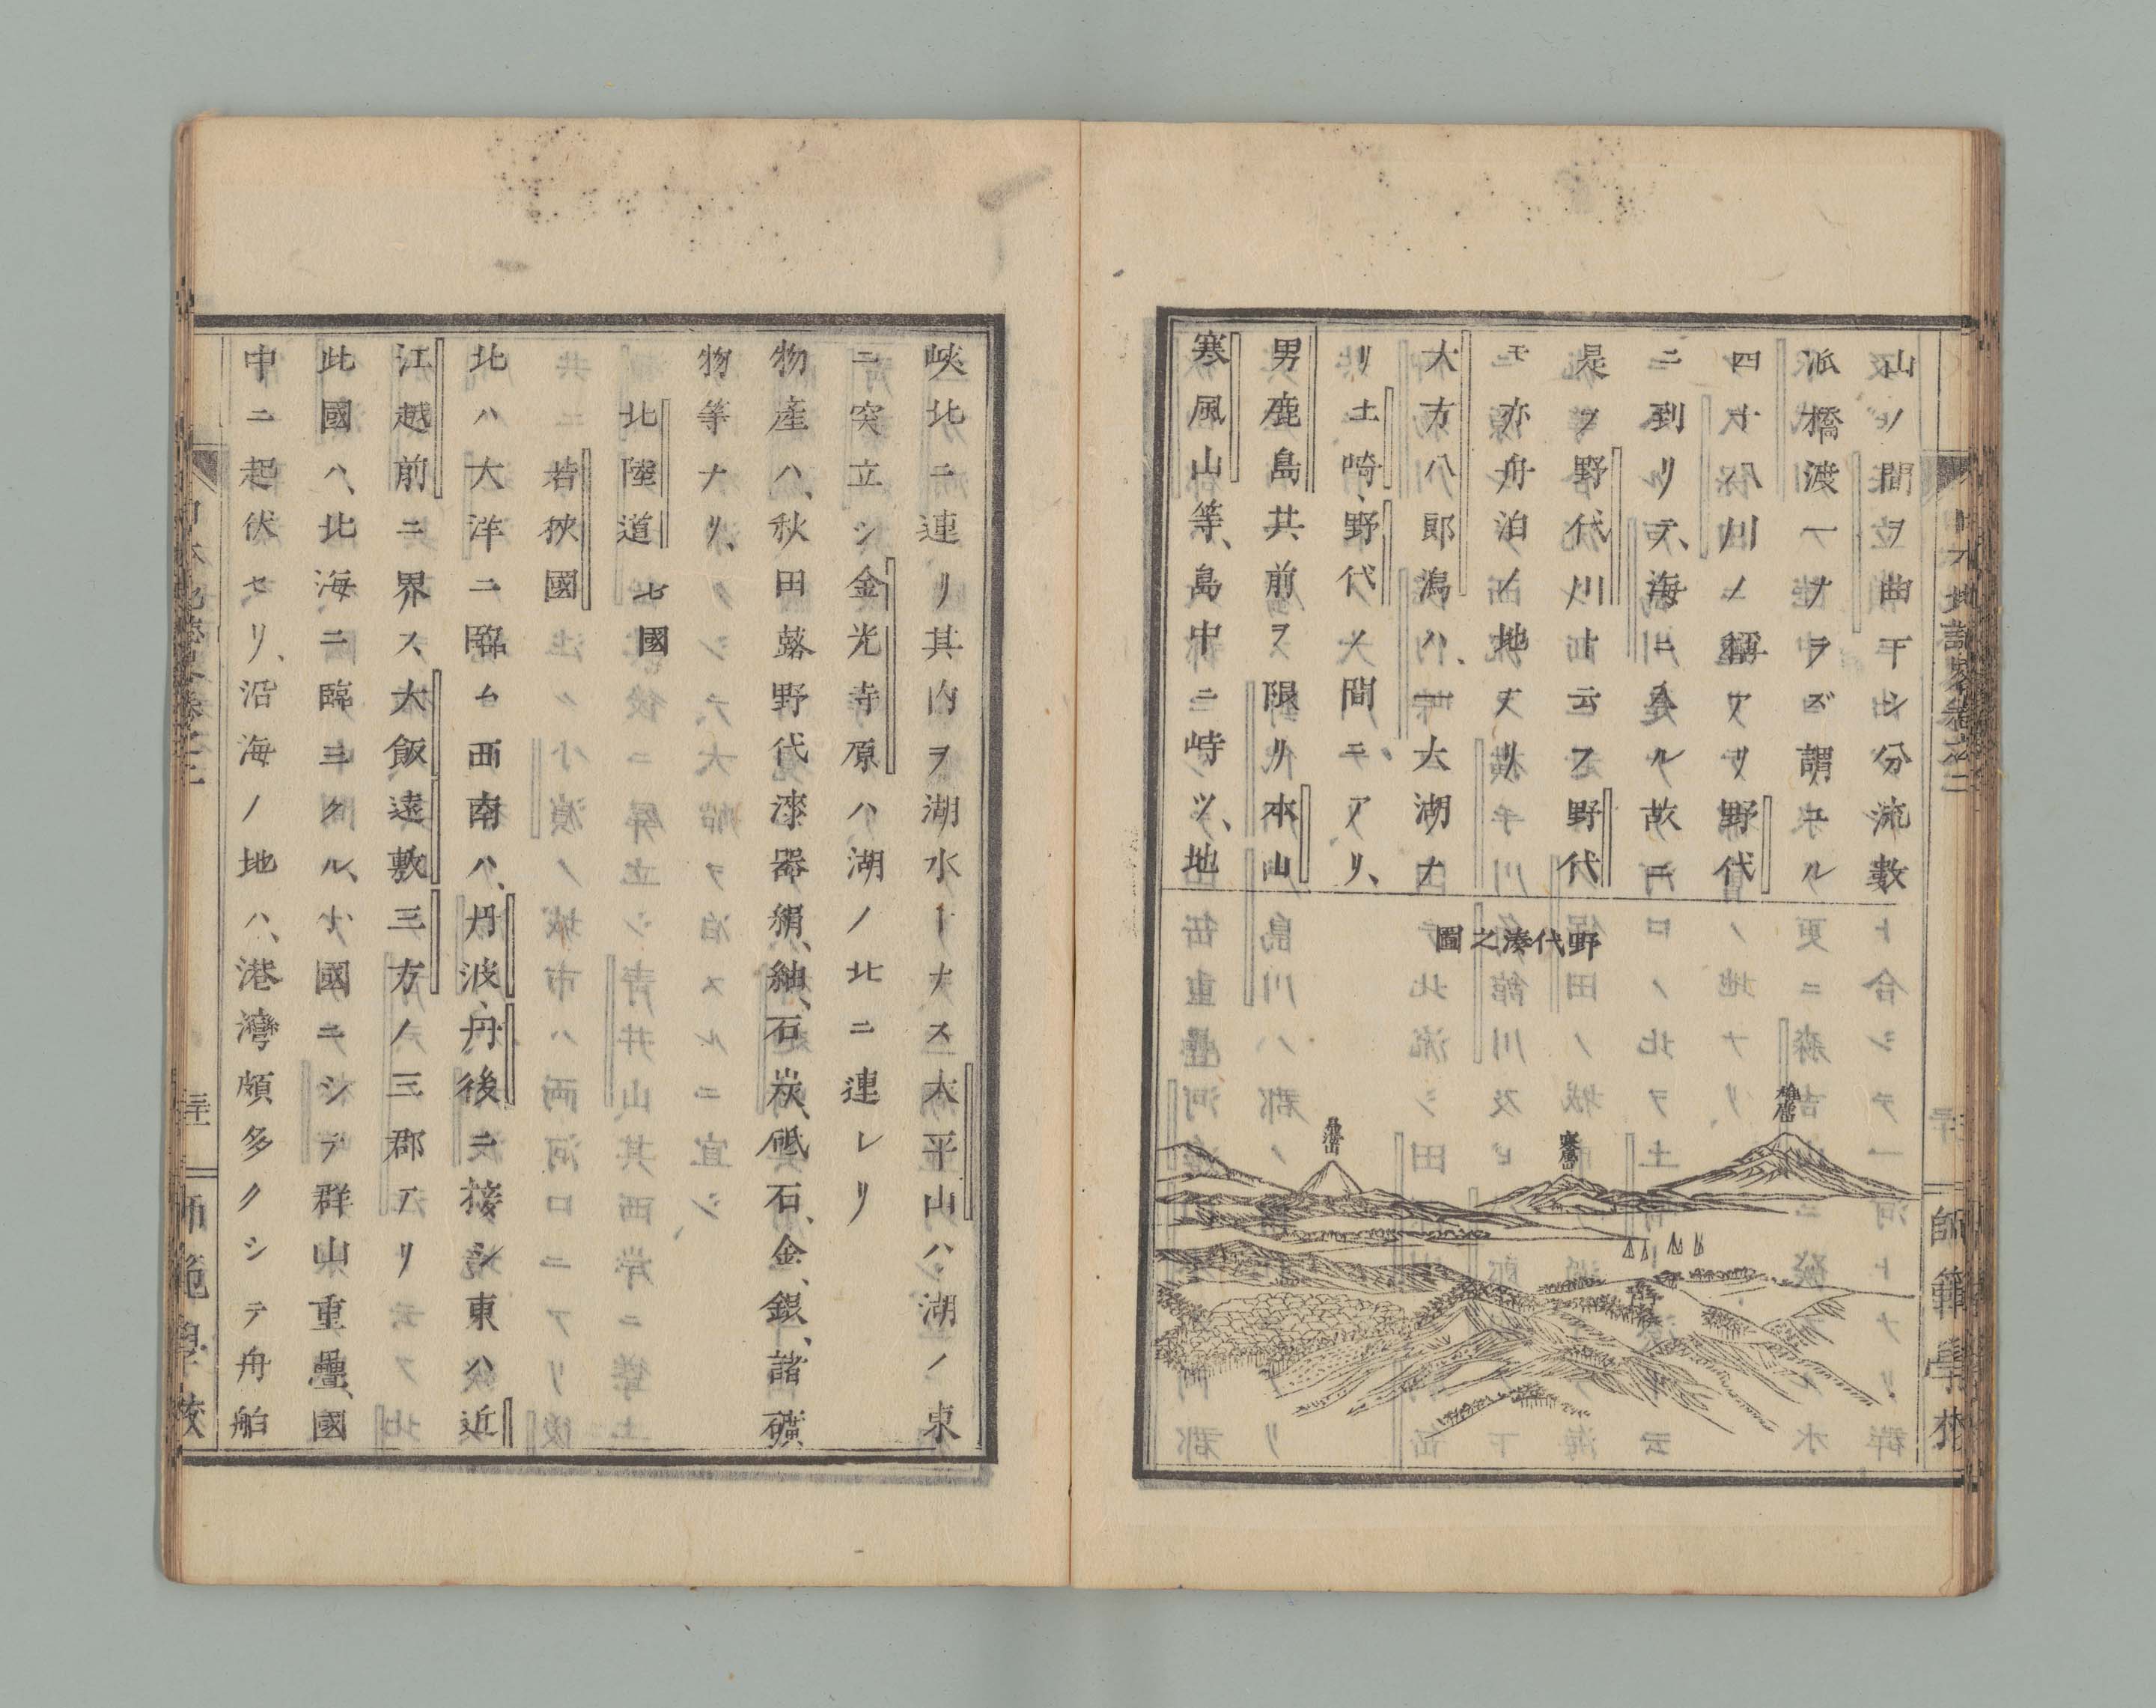 山ノ間ヲ曲干シ分流數
派橋渡一ナラズ謂ユル
四十八川ノ稱アリ野代
ニ到リテ、海ニ入ル故ニ
是ヲ野代川ト云フ野代
モ亦舟泊ノ地ナリ
大方八郎潟ハ、一大湖ナ
リ土崎、野代ノ間ニアリ、
男鹿島其前ヲ限リ本山
寒風山等、島中ニ峙ツ、地
野代湊之圖
寒風山
師範學校
峽北ニ連リ其内ヲ湖水トナス太平山ハ湖ノ東
ニ突立シ金光寺原ハ湖ノ北ニ連レリ
物產ハ、秋田蕗野代漆器絹、紬、石炭、砥石、金、銀、諸礦
物等ナリ、
北陸道 七國
若狹國
北ハ大洋ニ臨ム西南ハ、丹波、丹後ニ接シ東ハ近
江越前ニ界ス、大飯遠敷三方ノ三郡アリ
此國ハ、北海ニ臨ミタル、小國ニシテ群山重疊、國
中ニ起伏セリ、沿海ノ地ハ、港灣頗多クシテ舟舶
日本地誌畧卷之二
三十一
師範學校